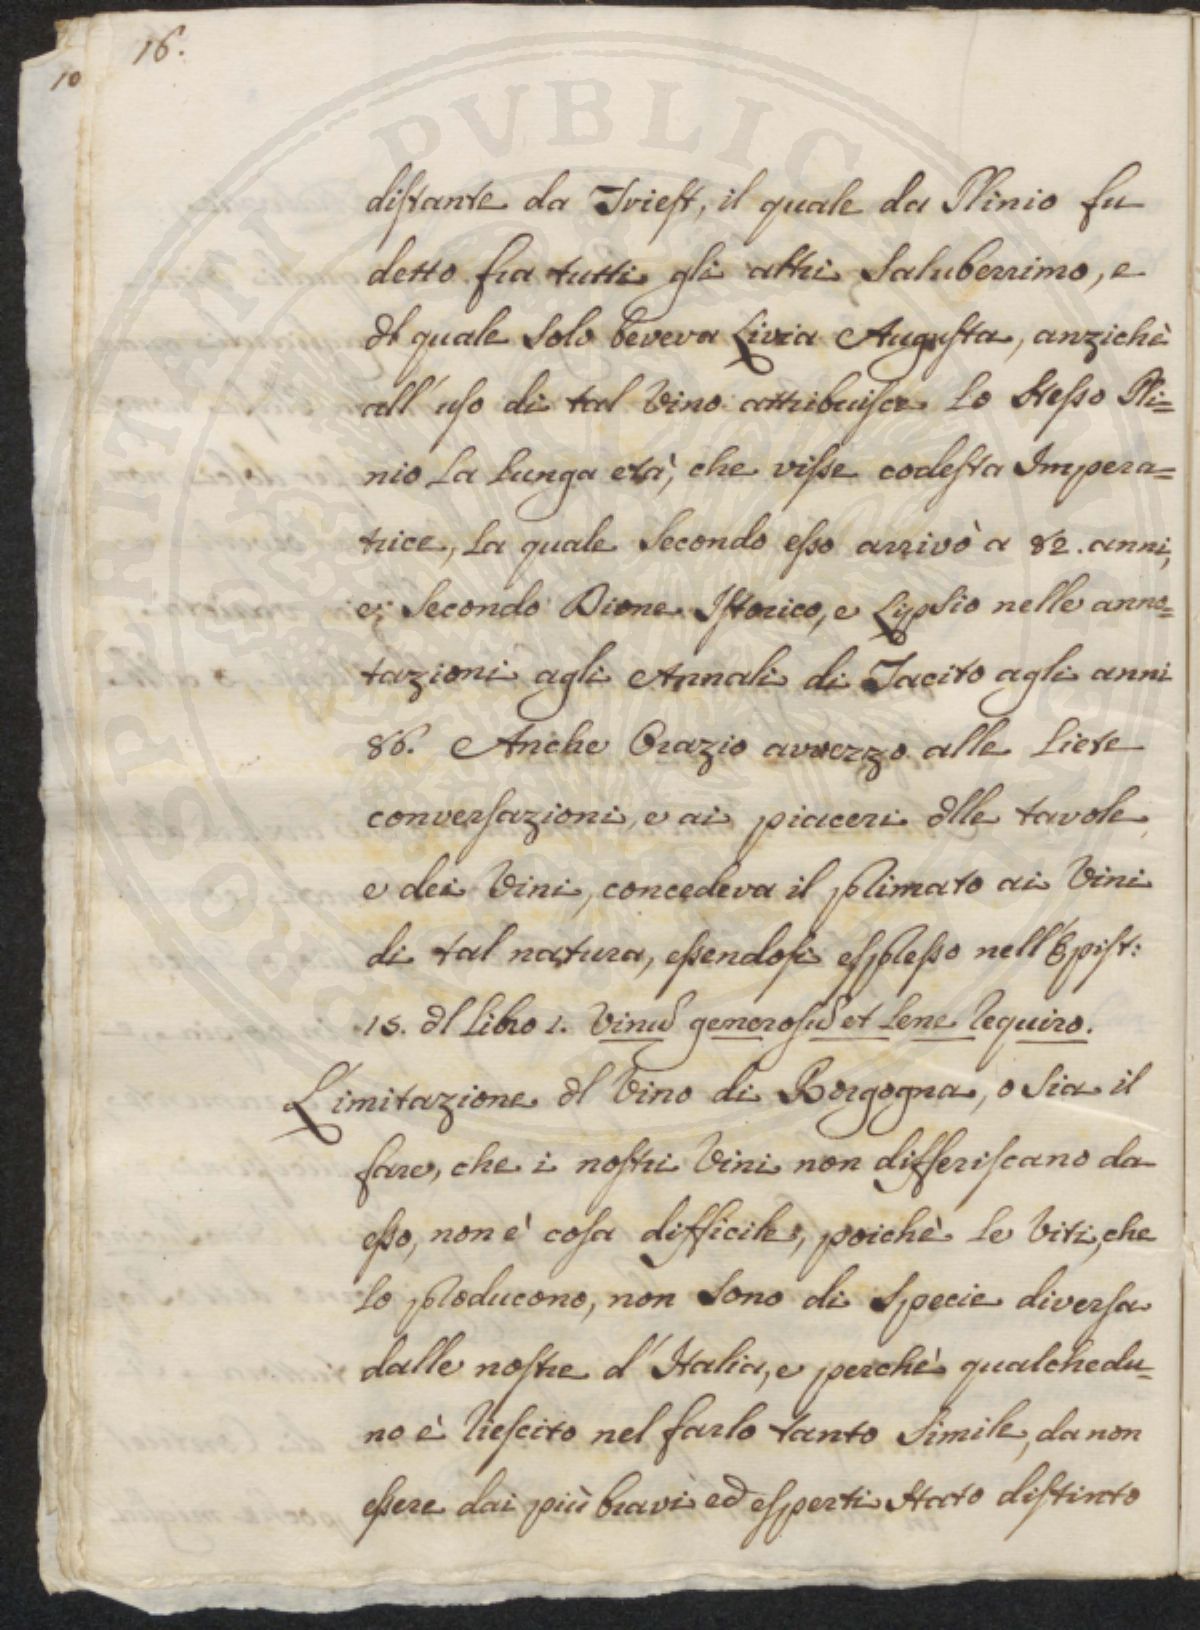 16.
10
PVBLICAE
PROSPERITATI
distante da Triest, il quale da Plinio fu
detto fra tutti gli altri Saluberrimo, e
dl quale Solo beveva Livia Augusta, anzichè
all' uso di tal Vino attribuisce Lo Stesso Pli=
nio La Lunga età, che visse codesta Impera=
trice, La quale Secondo esso arrivò a 82. anni,
e; Secondo Dione Istorico, e Lipsio nelle anno=
tazioni agli Annali di Tacito agli anni
86. Anche Orazio avvezzo alle Liete
conversazioni, e ai piaceri dlle tavole,
e dei Vini, concedeva il primato ai Vini
di tal natura, essendosi espresso nell'Epist:
15. dl Libro 1. Vinũ generosũ et Lene requiro.
L'imitazione dl Vino di Borgogna, o Sia il
fare, che i nostri Vini non differiscano da
esso, non è cosa difficile, poichè Le Viti, che
Lo producono, non Sono di Specie diversa
dalle nostre d' Italia, e perchè qualchedu=
no è riescito nel farlo tanto Simile, da non
essere dai più bravi ed esperti Stato distinto